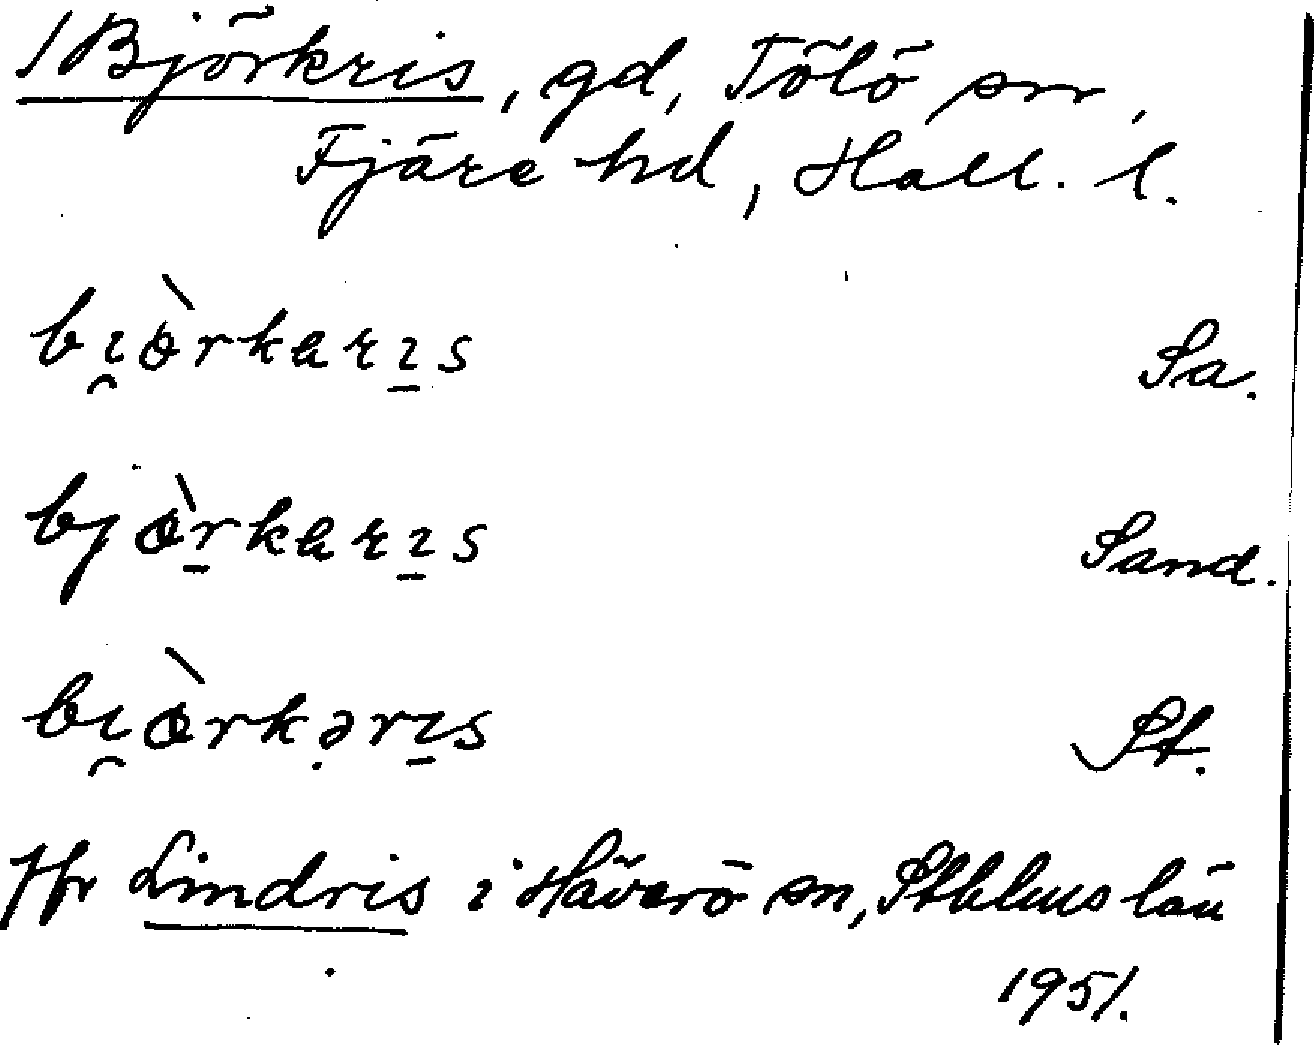 /Björkris, gd, Tölö sn,
Fjäre hd, Hall. l.
bı̯ö̀rkarı̲s Sa.
bjö̀r̲karı̲s Sand.
bı̯ö̀rkə̣rı̲s St.
Jfr Lindris i Häverö sn, Sthlms län
1951.